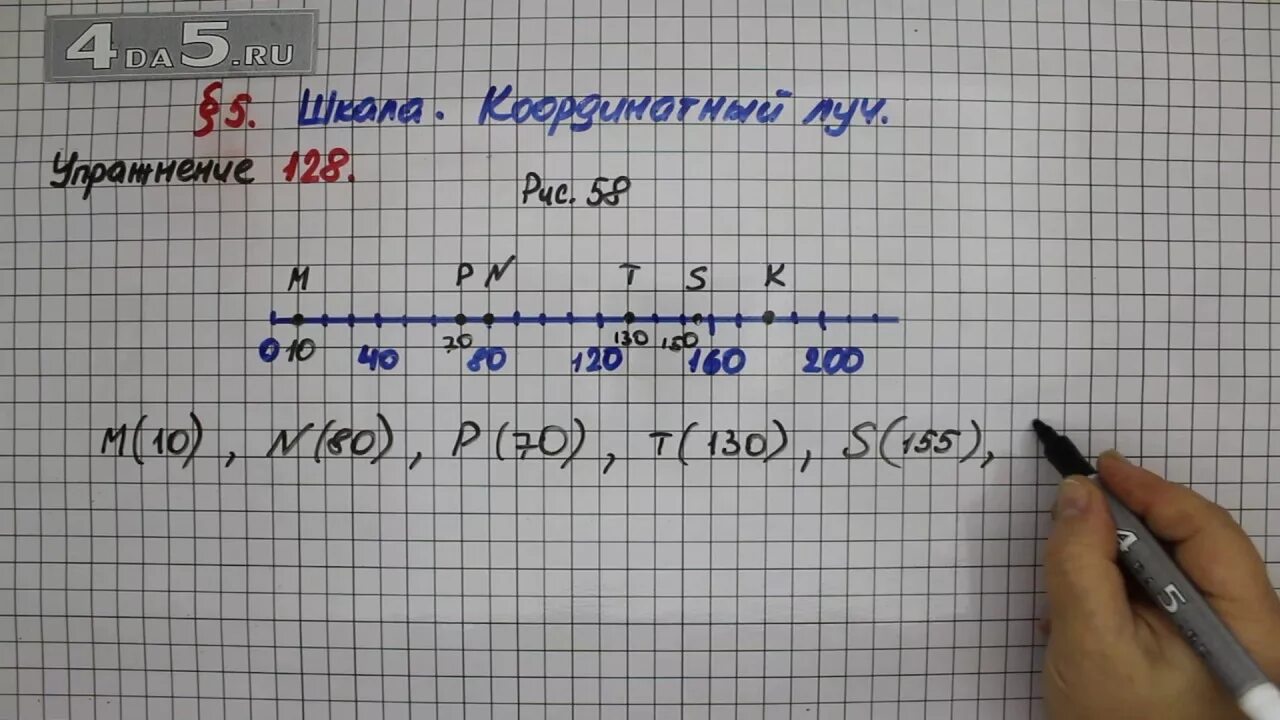 4DA5.RU
§5. Шкала. Координатный луч.
Упражнение 128.
Рис. 58
M P N T S K
0 10 40 70 80 120 130 150 160 200
M(10), N(80), P(70), T(130), S(155),
4DA5